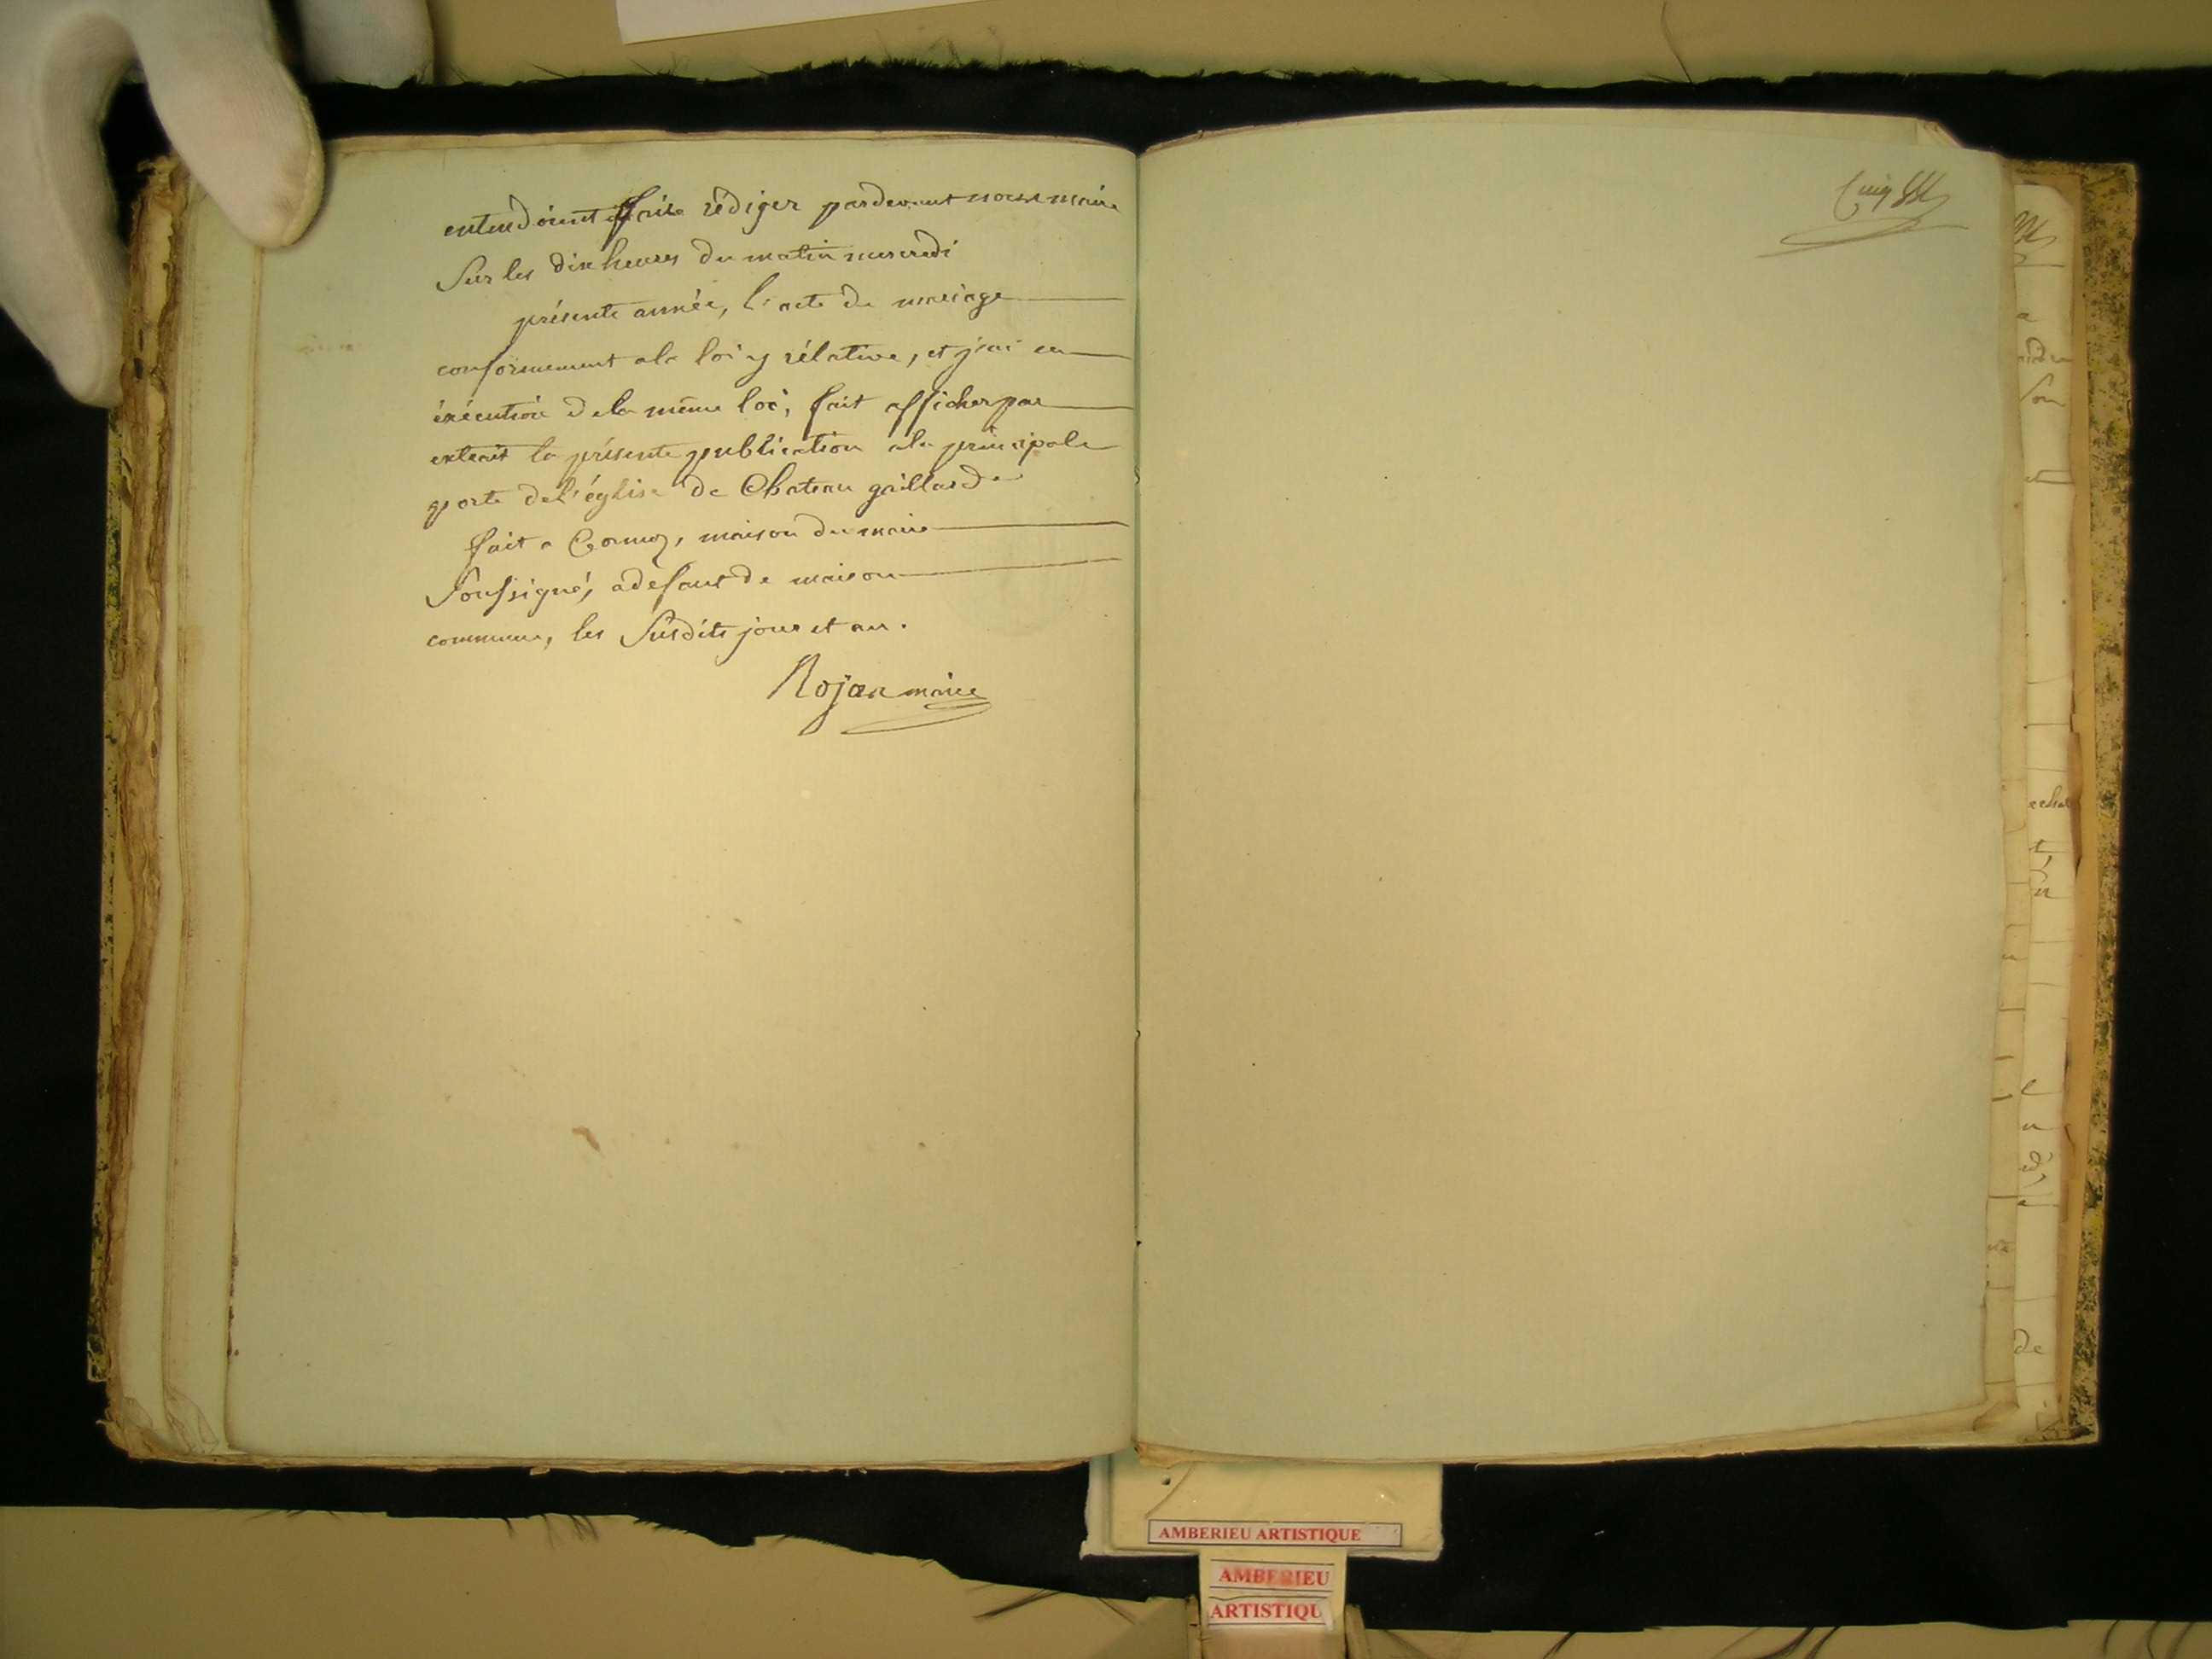 entendoient faire rédiger pardevant nous maire
Sur les dix heures du matin mercredi
présente année, l'acte de mariage
conformement a la loi y rélative, et j'ai en
éxécution de la même loi, fait afficher par
extrait la présente publication a la principale
porte de l'église de Chateau gaillard
fait a Cormoz, maison du maire
Soussigné, a defaut de maison
commune, les Susdits jour et an.
Rojan maire
AMBERIEU ARTISTIQUE
AMBERIEU
ARTISTIQU